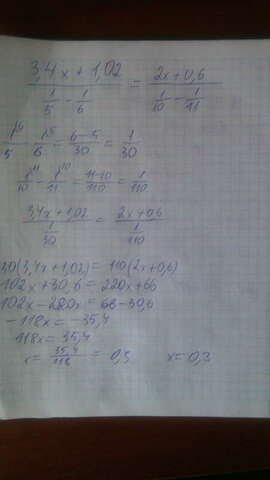 (3,4x + 1,02)/(1/5 - 1/6) = (2x + 0,6)/(1/10 - 1/11)
1/5 ⁶ - 1/6 ⁵ = (6-5)/30 = 1/30
1/10 ¹¹ - 1/11 ¹⁰ = (11-10)/110 = 1/110
(3,4x + 1,02)/(1/30) = (2x + 0,6)/(1/110)
30(3,4x + 1,02) = 110(2x + 0,6)
102x + 30,6 = 220x + 66
102x - 220x = 66 - 30,6
-118x = -35,4
118x = 35,4
x = 35,4/118 = 0,3 x = 0,3